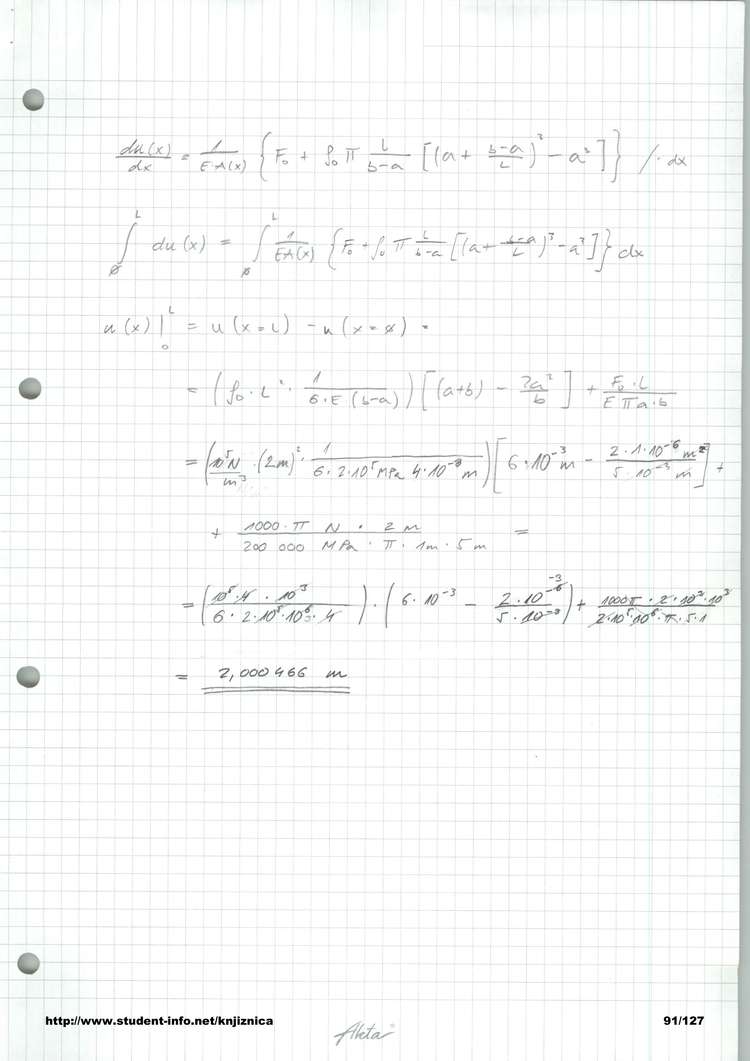 du(x)/dx = 1/(E·A(x)) {F₀ + ρ₀ π L/(b-a) [(a + (b-a)/L)³ - a³]} /· dx
∫₀ᴸ du(x) = ∫₀ᴸ 1/(EA(x)) {F₀ + ρ₀ π L/(b-a) [(a + (b-a)/L)³ - a³]} dx
u(x)|₀ᴸ = u(x=L) - u(x=0) =
= (ρ₀ · L² · 1/(6·E (b-a))) [(a+b) - 2a²/b] + F₀·L/(E π a·b)
= (10⁵N/m³ · (2m)² · 1/(6·2·10⁵MPa 4·10⁻³m)) [6·10⁻³m - 2·1·10⁻⁶m²/(5·10⁻³m)] +
+ 1000·π N · 2m/(200 000 MPa · π · 1m · 5m) =
= (10⁵·4·10³/(6·2·10⁵·10⁶·4)) · (6·10⁻³ - 2·10⁻⁶/(5·10⁻³)) + 1000π·2·10³·10³/(2·10⁵·10⁶·π·5·1)
= 2,000466 m
http://www.student-info.net/knjiznica
Akta
91/127